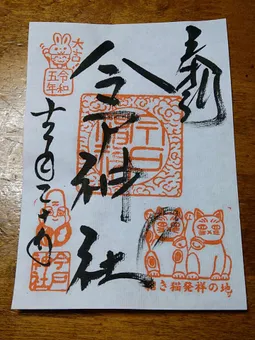 奉拝
今戸神社
大吉
令和
五年
十二月二十日
今戸
神社
今戸
神社
招き猫発祥の地